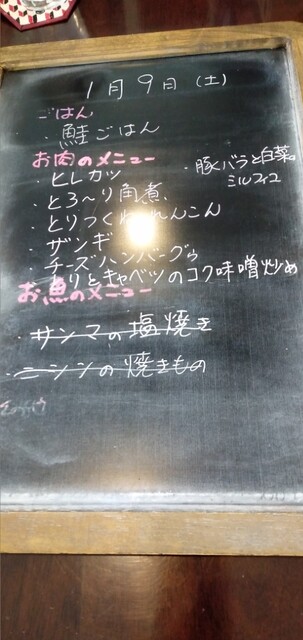 1月9日(土)
ごはん
・鮭ごはん
お肉のメニュー
・ヒレカツ
・豚バラと白菜の
ミルフィユ
・とろ～り角煮
・とりつくねれんこん
・ザンギ
・チーズハンバーグ
・とりとキャベツのコク味噌炒め
お魚のメニュー
・サンマの塩焼き
・ニシンの焼きもの